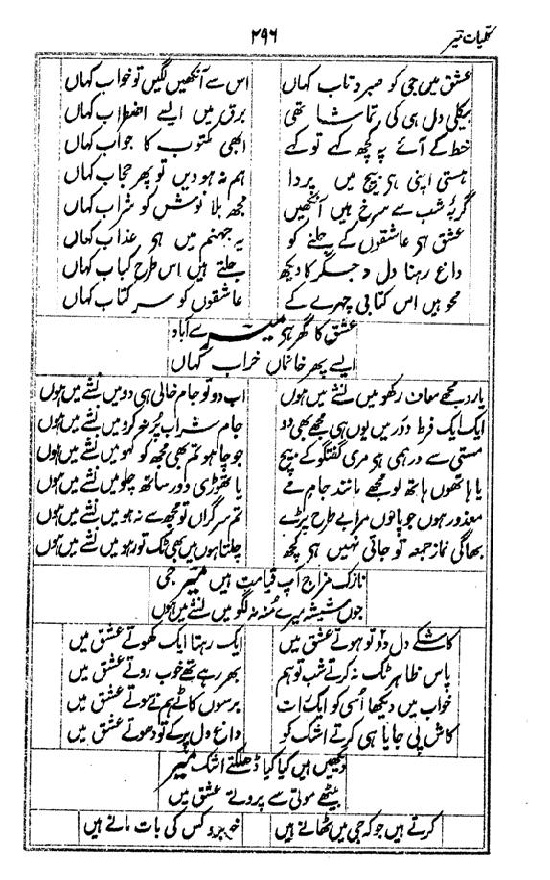 کلیات میر ۲۹۶
عشق میں جی کو صبر و تاب کہاں اس سے آنکھیں لگیں تو خواب کہاں
بیکلی دل ہی کی تماشا تھی برق میں ایسے اضطراب کہاں
خط کے آئے پہ کچھ کہے تو کہے ابھی مکتوب کا جواب کہاں
ہستی اپنی ہے بیچ میں پردا ہم نہ ہوویں تو پھر حجاب کہاں
گریۂ شب سے سرخ ہیں آنکھیں مجھ بلا نوش کو شراب کہاں
عشق ہے عاشقوں کے جلنے کو یہ جہنم میں ہے عذاب کہاں
داغ رہنا دل و جگر کا دیکھ جلتے ہیں اس طرح کباب کہاں
محو ہیں اس کتابی چہرے کے عاشقوں کو سر کتاب کہاں
عشق کا گھر ہے میر سے آباد
ایسے پھر خانماں خراب کہاں
یارو مجھے معاف رکھو میں نشے میں ہوں اب دو تو جام خالی ہی دو میں نشے میں ہوں
ایک ایک فرط دور میں یوں ہی مجھے بھی دو جام شراب پر نہ کرو میں نشے میں ہوں
مستی سے درہمی ہے مری گفتگو کے بیچ جو چاہو تم بھی مجھ کو کہو میں نشے میں ہوں
یا ہاتھوں ہاتھ لو مجھے مانند جام مے یا تھوڑی دور ساتھ چلو میں نشے میں ہوں
معذور ہوں جو پانوں مرا بے طرح پڑے تم سرگراں تو مجھ سے نہ ہو میں نشے میں ہوں
بھاگی نماز جمعہ تو جاتی نہیں ہے کچھ چلتا ہوں میں بھی ٹک تو رہو میں نشے میں ہوں
نازک مزاج آپ قیامت ہیں میر جی
جوں شیشہ میرے منہ نہ لگو میں نشے میں ہوں
کاشکے دل دو تو ہوتے عشق میں ایک رہتا ایک کھوتے عشق میں
پاس ظاہر ٹک نہ کرتے شب تو ہم بھر رہے تھے خوب روتے عشق میں
خواب میں دیکھا اسی کو ایک رات برسوں کاٹے ہم نے سوتے عشق میں
کاش پی جایا ہی کرتے اشک کو داغ دل پر کے تو دھوتے عشق میں
دیکھیں ہیں کیا کیا ڈھلکتے اشک میر
بیٹھے موتی سے پروتے عشق میں
کرتے ہیں جو کہ جی میں ٹھانے ہیں خوبرو کس کی بات مانے ہیں